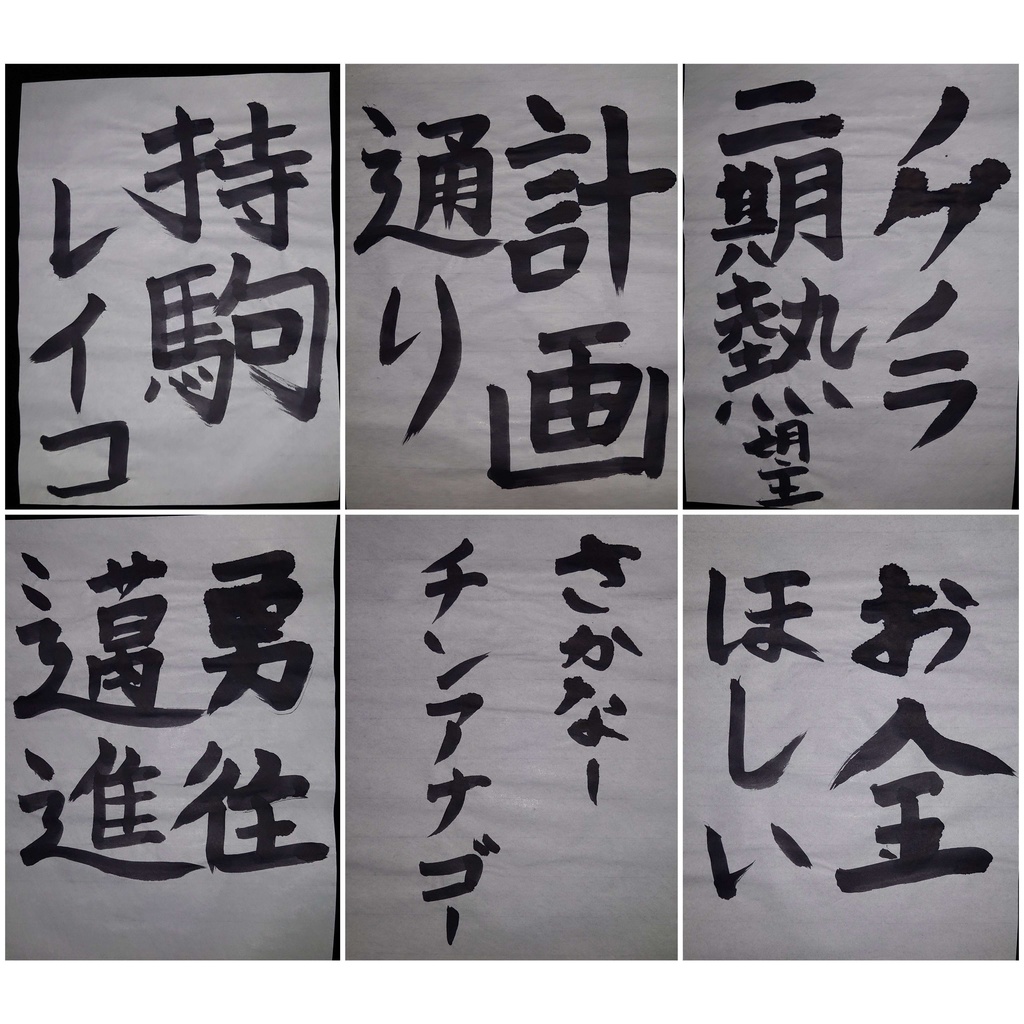 持駒
レイコ
計画
通り
ノゲノラ
二期熱望
勇往
邁進
さかなー
チンアナゴー
お金
ほしい